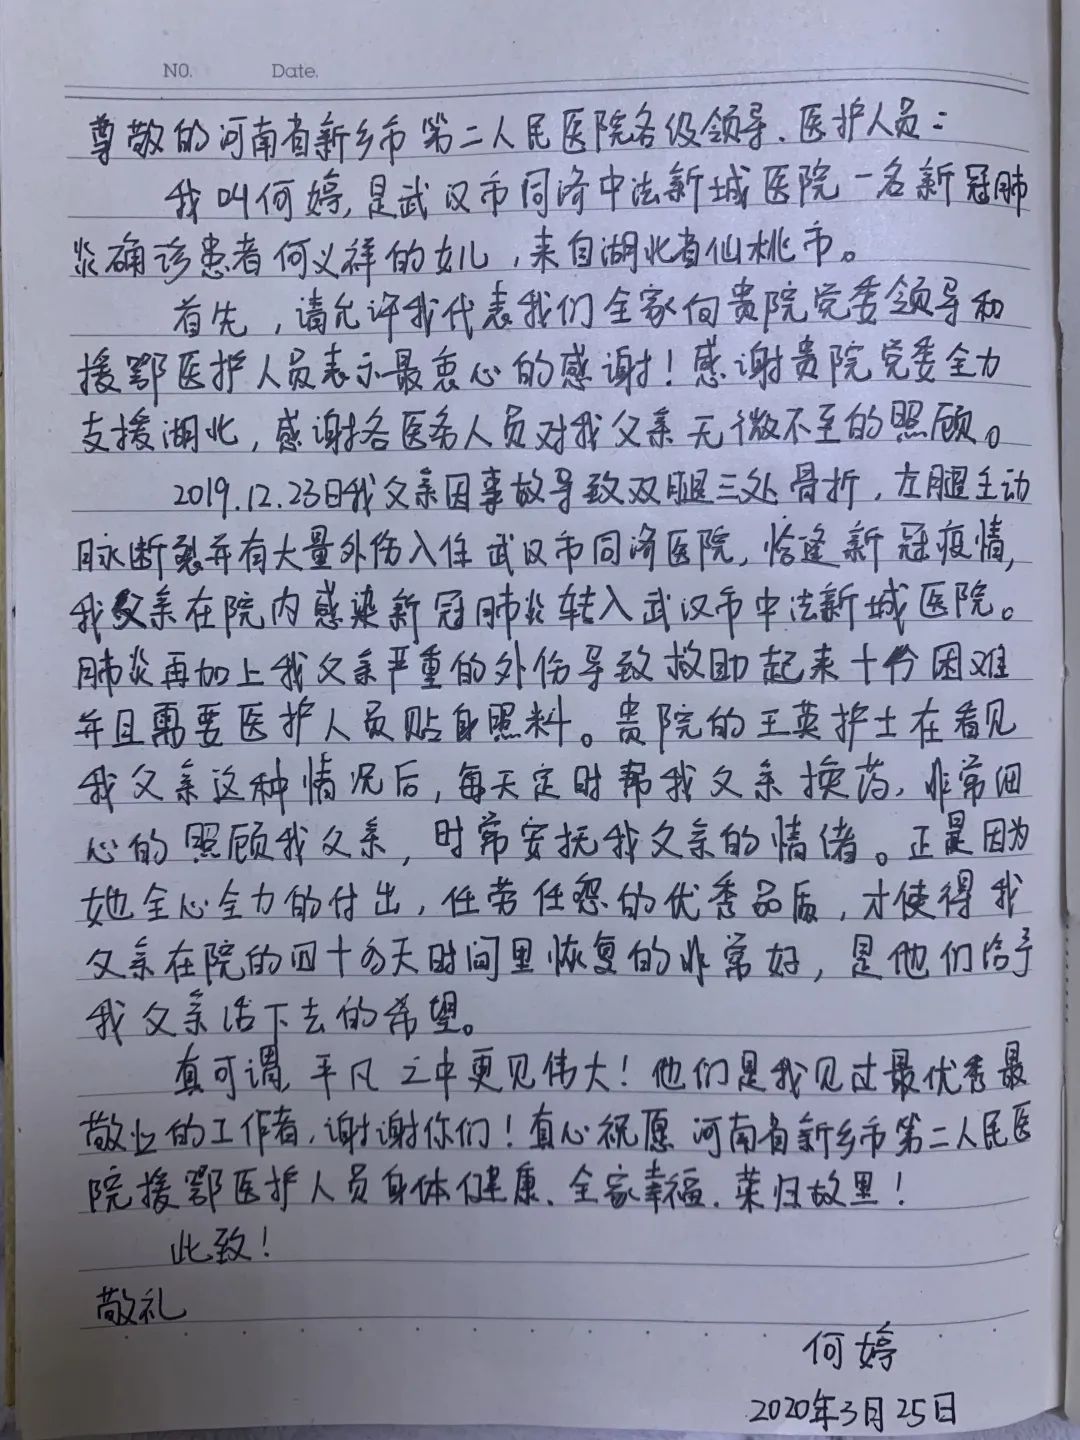 NO. Date.
尊敬的河南省新乡市第二人民医院各级领导、医护人员：
我叫何婷，是武汉市同济中法新城医院一名新冠肺
炎确诊患者何义祥的女儿，来自湖北省仙桃市。
首先，请允许我代表我们全家向贵院党委领导和
援鄂医护人员表示最衷心的感谢！感谢贵院党委全力
支援湖北，感谢各医务人员对我父亲无微不至的照顾。
2019.12.23日我父亲因事故导致双腿三处骨折，左腿主动
脉断裂并有大量外伤入住武汉市同济医院，恰逢新冠疫情，
我父亲在院内感染新冠肺炎转入武汉市中法新城医院。
肺炎再加上我父亲严重的外伤导致救助起来十分困难
并且需要医护人员贴身照料。贵院的王英护士在看见
我父亲这种情况后，每天定时帮我父亲换药，非常细
心的照顾我父亲，时常安抚我父亲的情绪。正是因为
她全心全力的付出，任劳任怨的优秀品质，才使得我
父亲在院的四十多天时间里恢复的非常好，是他们给予
我父亲活下去的希望。
真可谓，平凡之中更见伟大！他们是我见过最优秀最
敬业的工作者，谢谢你们！真心祝愿河南省新乡市第二人民医
院援鄂医护人员身体健康、全家幸福、荣归故里！
此致！
敬礼
何婷
2020年3月25日